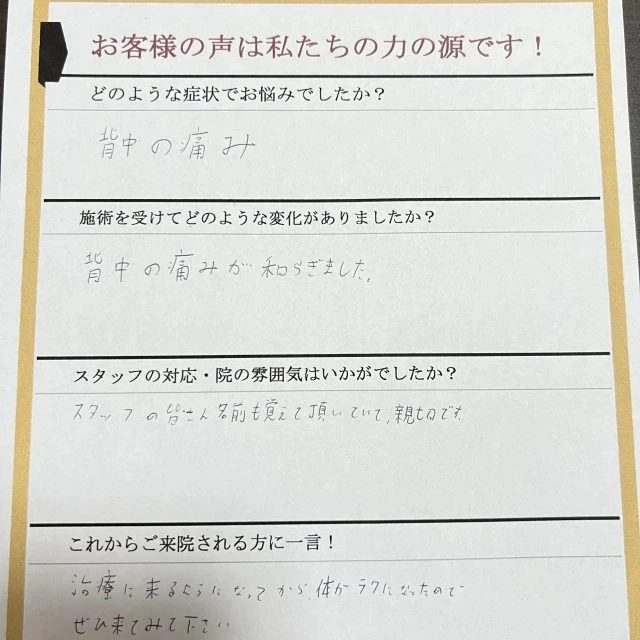 お客様の声は私たちの力の源です！
どのような症状でお悩みでしたか？
背中の痛み
施術を受けてどのような変化がありましたか？
背中の痛みが和らぎました。
スタッフの対応・院の雰囲気はいかがでしたか？
スタッフの皆さん名前も覚えて頂いていて、親切です。
これからご来院される方に一言！
治療に来るようになってから、体がラクになったので
ぜひ来てみて下さい